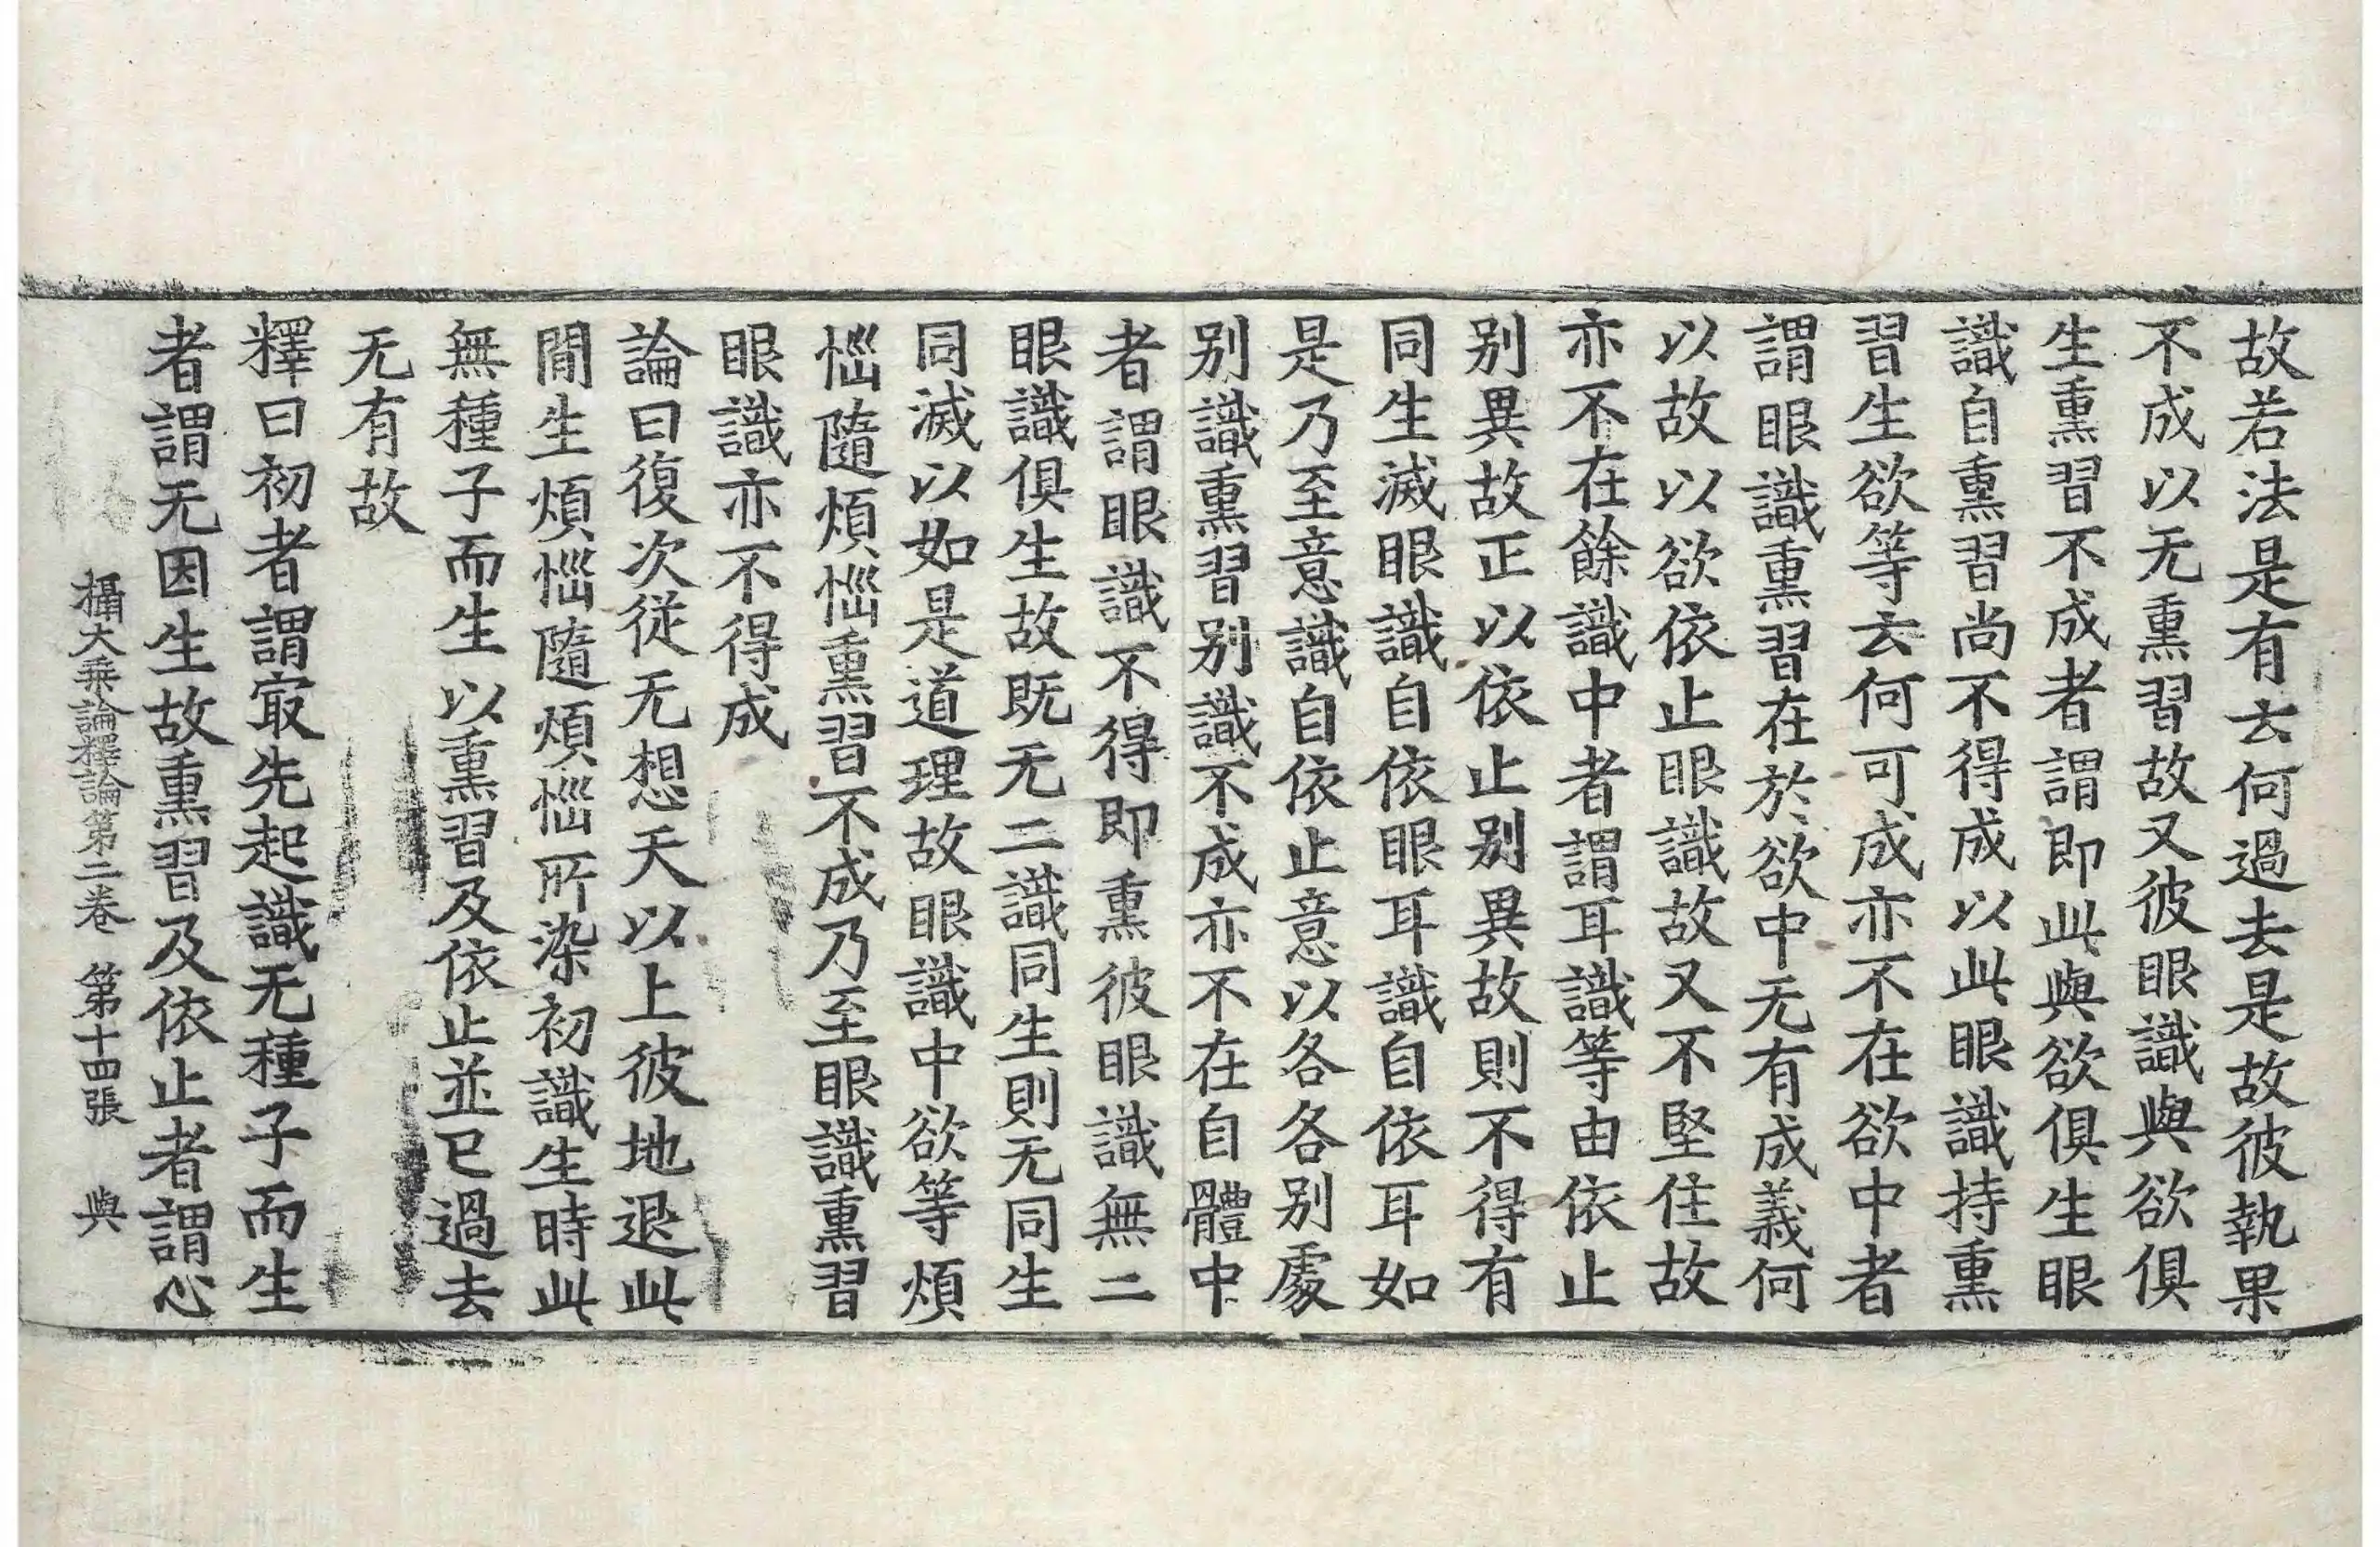 故若法是有去何過去是故彼執果
不成以无熏習故又彼眼識與欲俱
生熏習不成者謂即此與欲俱生眼
識自熏習尚不得成以此眼識持熏
習生欲等去何可成亦不在欲中者
謂眼識熏習在於欲中无有成義何
以故以欲依止眼識故又不堅住故
亦不在餘識中者謂耳識等由依止
别異故正以依止别異故則不得有
同生滅眼識自依眼耳識自依耳如
是乃至意識自依止意以各各别處
别識熏習别識不成亦不在自體中
者謂眼識不得即熏彼眼識無二
眼識俱生故既无二識同生則无同生
同滅以如是道理故眼識中欲等煩
惱隨煩惱熏習不成乃至眼識熏習
眼識亦不得成
論曰復次從无想天以上彼地退此
間生煩惱隨煩惱所染初識生時此
無種子而生以熏習及依止並已過去
无有故
釋曰初者謂㝡先起識无種子而生
者謂无因生故熏習及依止者謂心
攝大乗論釋論第二卷 第十四張 與